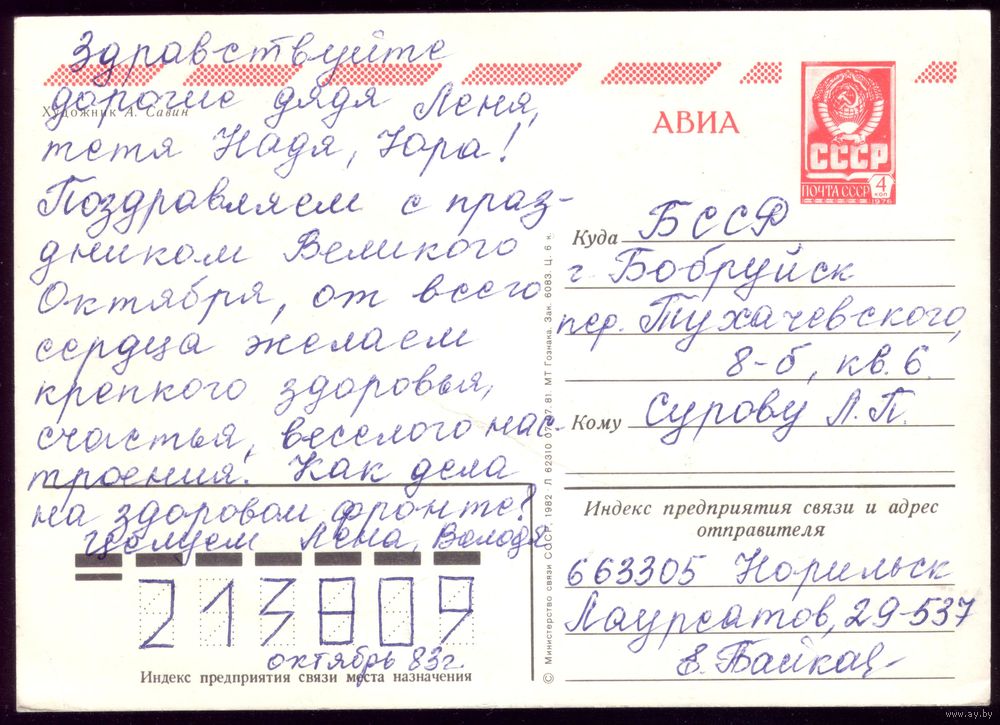 Здравствуйте
дорогие дядя Леня,
тетя Надя, Юра!
Поздравляем с праз-
дником Великого
Октября, от всего
сердца желаем
крепкого здоровья,
счастья, веселого нас-
троения. Как дела
на здоровом фронте?
Целуем Лена, Володя
Художник А. Савин
АВИА
СССР
ПОЧТА СССР 4 коп
1976
Куда БССР
г Бобруйск
пер. Тухачевского,
8-б, кв. 6.
Кому Сурову Л. П.
Индекс предприятия связи и адрес
отправителя
663305 Норильск
Лауреатов, 29-537
Е.
213809
октябрь 83г.
Индекс предприятия связи места назначения
© Министерство связи СССР, 1982 Л 62310 07. 81 МТ Гознака. Зак. 6083. Ц. 6 к.
www.ay.by